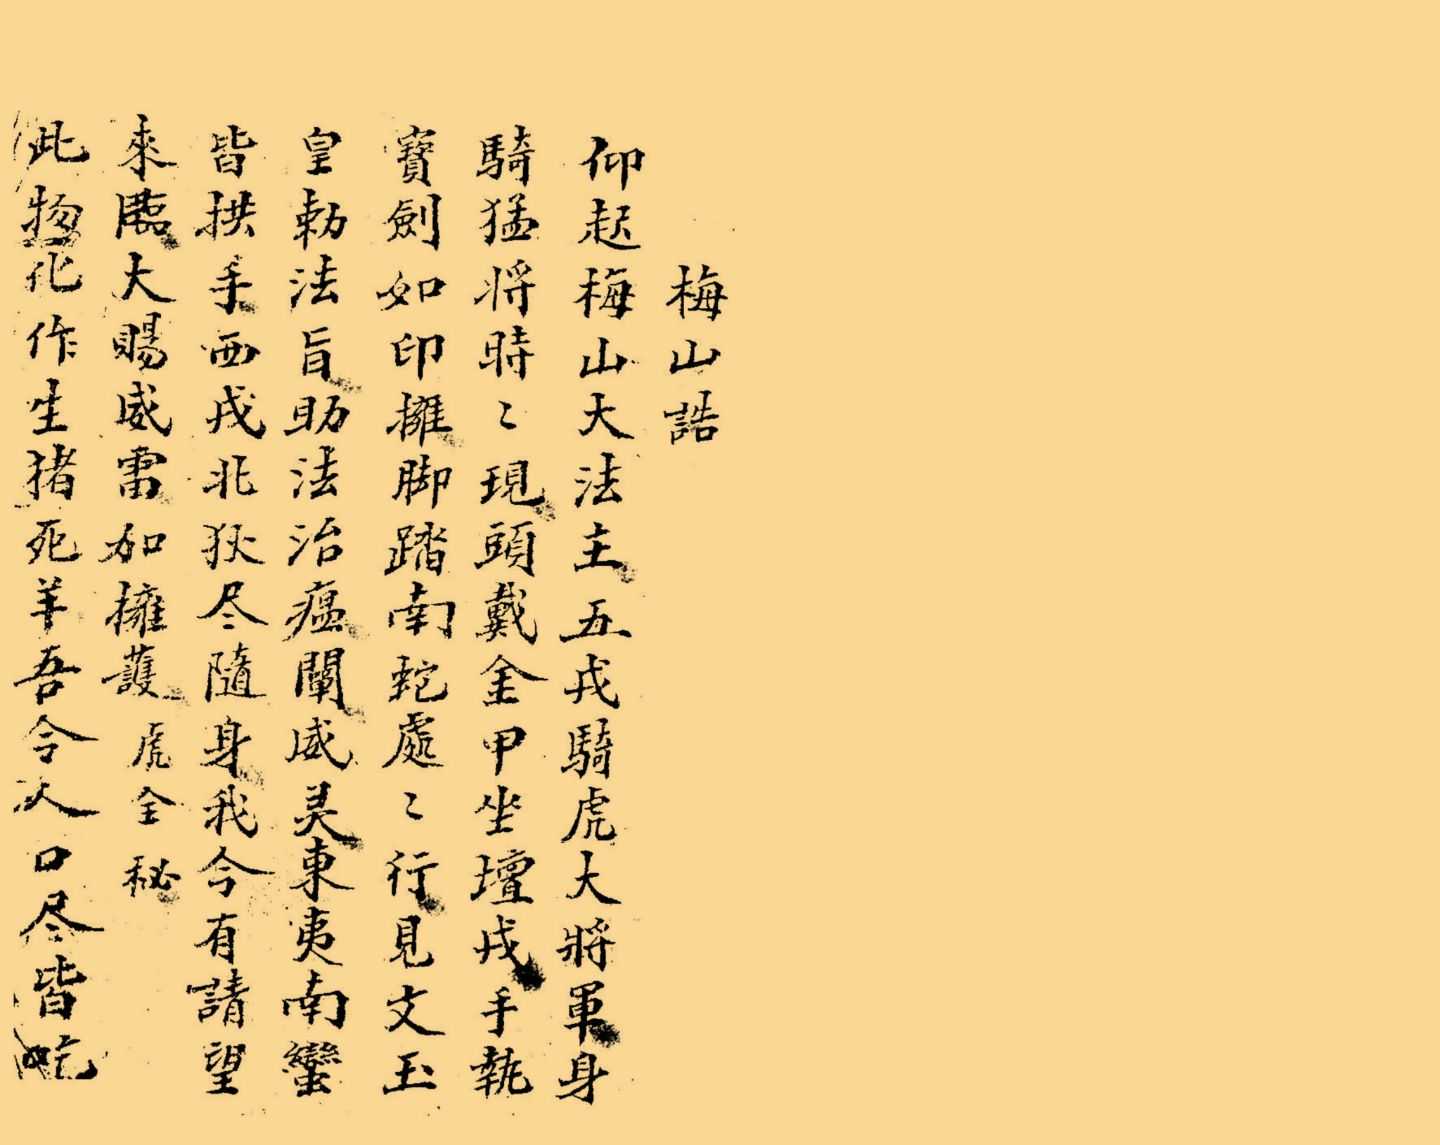 梅山誥
仰起梅山大法主五戎騎虎大將軍身
騎猛将時〻現頭戴金甲坐壇戎手執
寳劍如印擁脚踏南蛇處〻行見文玉
皇勅法旨助法治瘟闡威灵東夷南蠻
皆拱手西戎北狄尽隨身我今有請望
來臨大賜威雷加擁護虎全秘
此物化作生猪死羊吾令人口尽皆吃